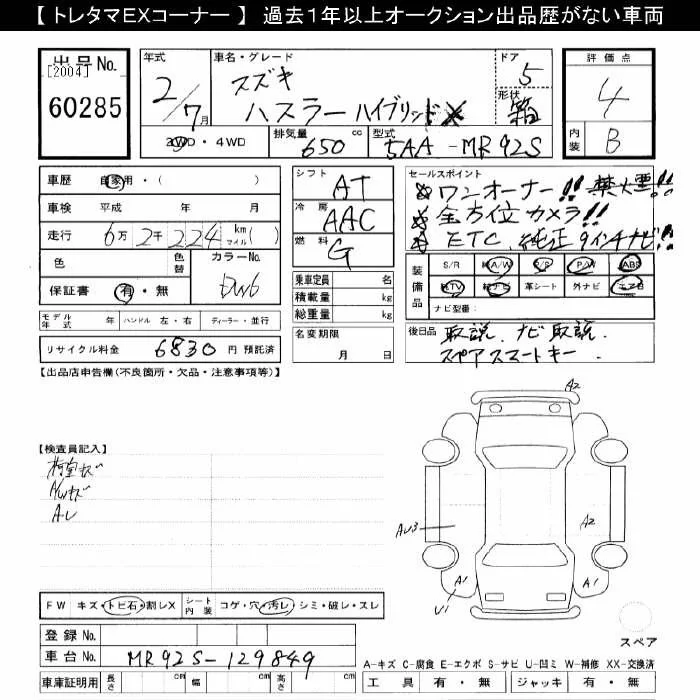 【 トレタマEXコーナー 】 過去１年以上オークション出品歴がない車両
出品No.
[2004]
60285
年式
2/7月
車名・グレード
スズキ
ハスラー ハイブリッド X
ドア
5
形状
箱
2WD・4WD
排気量
650 cc
型式
5AA-MR92S
評価点
4
内装
B
車歴 自家用・( )
車検 平成 年 月
走行 6万2千224 km マイル( )
色
色替
カラーNo.
保証書 有・無
モデル年式 年 ハンドル 左・右 ディーラー・並行
リサイクル料金 6830 円 預託済
シフト AT
冷房 AAC
燃料 G
乗車定員 名
積載量 kg
総重量 kg
名変期限
月 日
セールスポイント
ワンオーナー!! 禁煙!!
全方位カメラ!!
ETC、純正9インチナビ!!
装備品
S/R 純A/W P/S P/W ABS
純TV 純ナビ 革シート 外ナビ エアB
ナビ型番:
後日品
取説、ナビ取説、
スペアスマートキー
【出品店申告欄(不良箇所・欠品・注意事項等)】
【検査員記入】
AWキズ
AU
A2
AU3
A2
A1
A1
U1
スペア
FW キズ・トビ石・割レX
シート内装 コゲ・穴・汚レ・シミ・破レ・スレ
登録No.
車台No. MR92S-129849
車庫証明用 長さ cm 幅 cm 高さ cm
A-キズ C-腐食 E-エクボ S-サビ U-凹ミ W-補修 XX-交換済
工具 有・無 ジャッキ 有・無